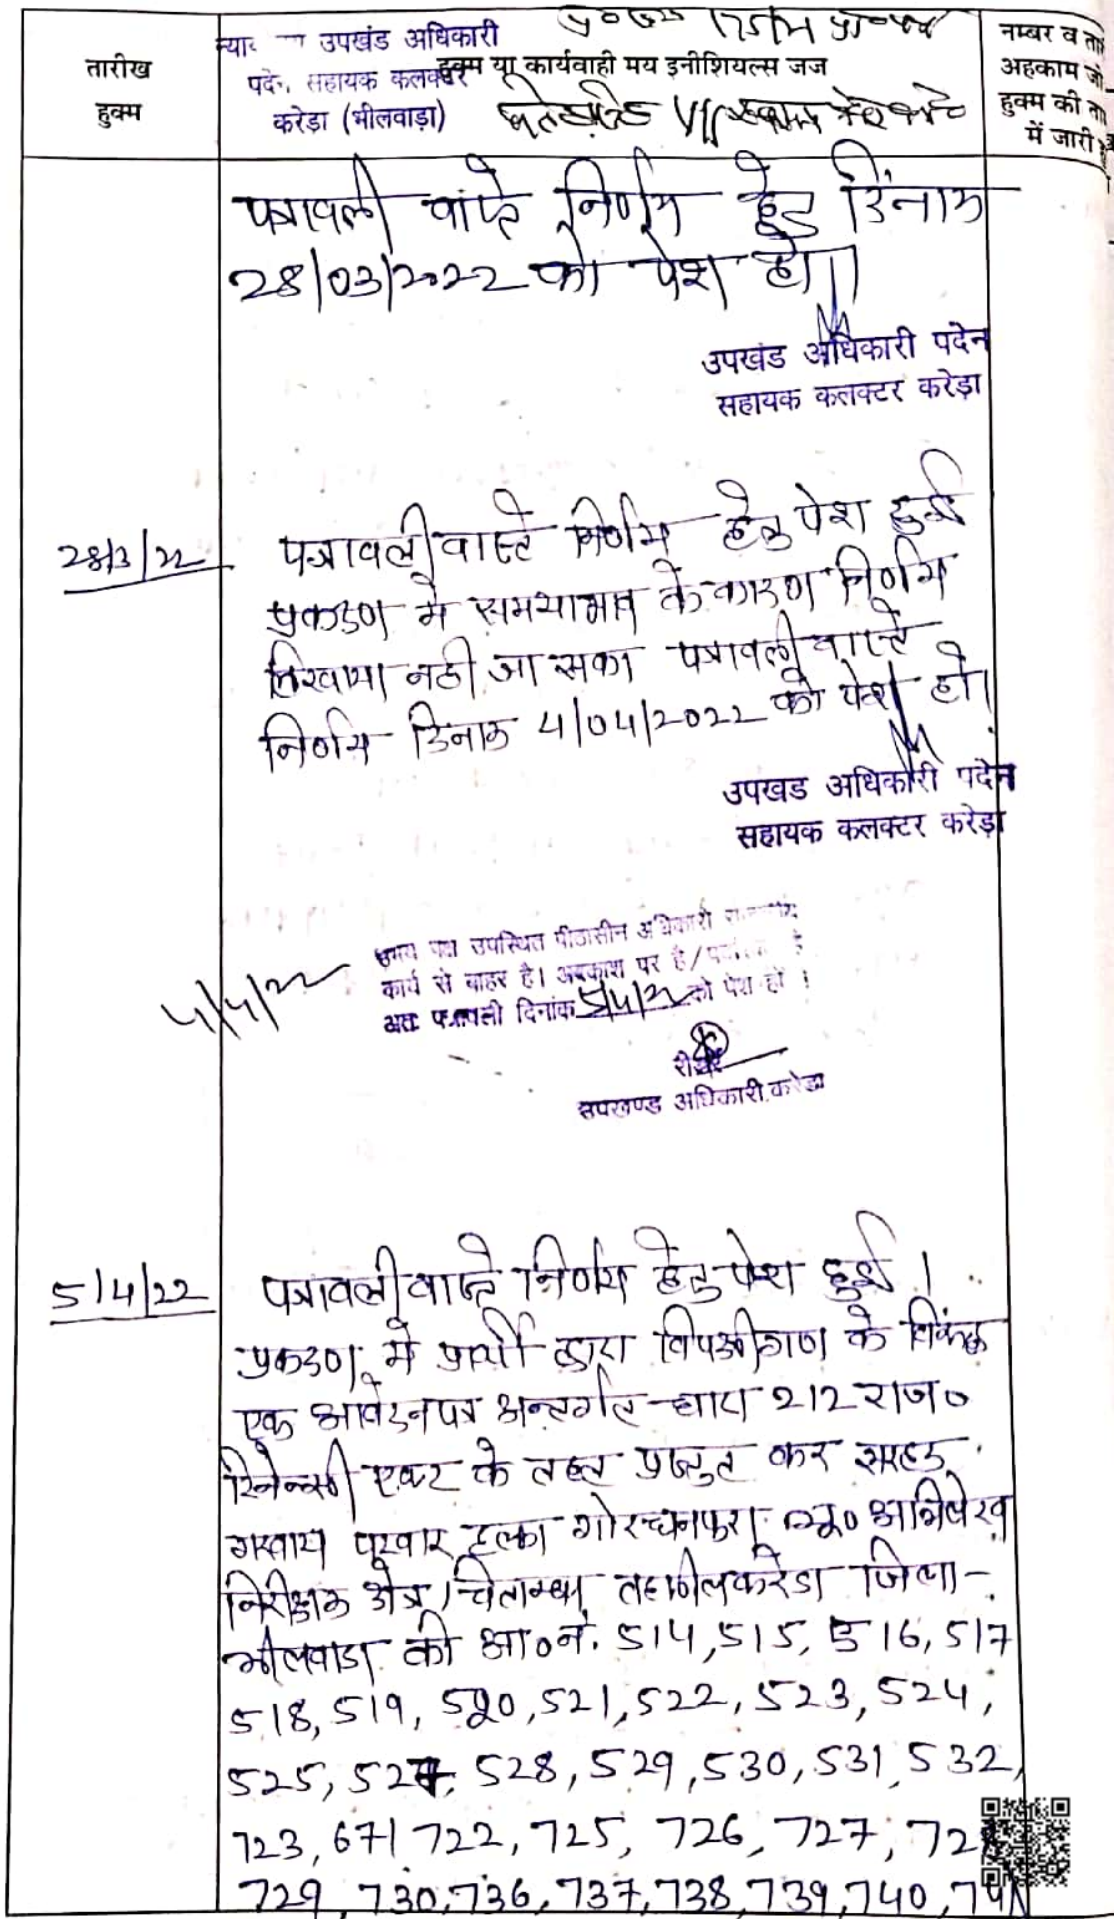 तारीख
हुक्म
उपखंड अधिकारी
पदेन सहायक कलक्टर
करेड़ा (भीलवाड़ा)
हुक्म या कार्यवाही मय इनीशियल्स जज
नम्बर व ता
अहकाम जो
हुक्म की ता
में जारी
पत्रावली वास्ते निर्णय हेतु दिनांक
28/03/2022 को पेश हो।
उपखंड अधिकारी पदेन
सहायक कलक्टर करेड़ा
28/3/22
पत्रावली वास्ते निर्णय हेतु पेश हुई
प्रकरण मे समयाभाव के कारण निर्णय
लिखाया नही जा सका पत्रावली वास्ते
निर्णय दिनांक 4/04/2022 को पेश हो।
उपखड अधिकारी पदेन
सहायक कलक्टर करेड़ा
4/4/22
उभय पक्ष उपस्थित पीठासीन अधिकारी
कार्य से बाहर है। अवकाश पर है/
अतः पत्रावली दिनांक 5/4/22 को पेश हो।
रीडर
उपखण्ड अधिकारी करेडा
5/4/22
पत्रावली वास्ते निर्णय हेतु पेश हुई।
प्रकरण मे प्रार्थी द्वारा विपक्षीगण के विरूद्ध
एक आवेदन पत्र अन्तर्गत धारा 212 राज०
टिनेन्सी एक्ट के तहत प्रस्तुत कर
हल्का गोरधनपुरा भू० अभिलेख
निरीक्षक क्षेत्र चिताम्बा तहसील करेडा जिला-
भीलवाडा की आ०नं. 514, 515, 516, 517
518, 519, 520, 521, 522, 523, 524,
525, 527, 528, 529, 530, 531, 532,
723, 671 722, 725, 726, 727,
729, 730, 736, 737, 738, 739, 740, 741